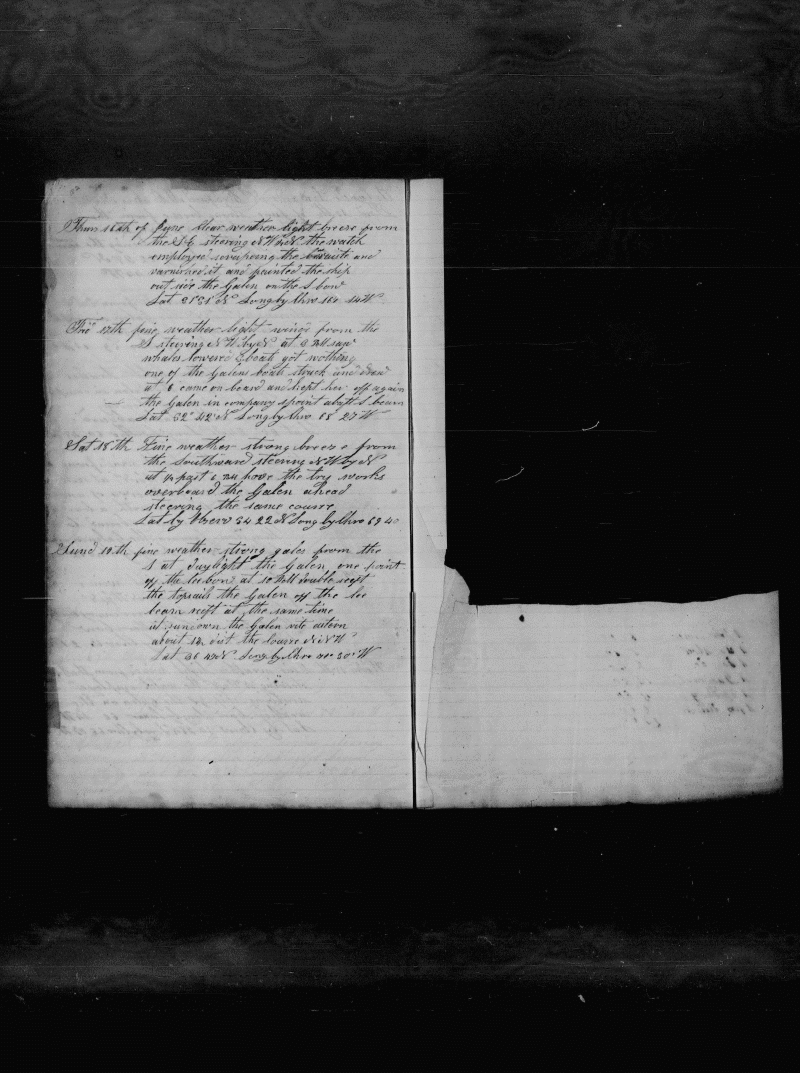 Thurs 16th of June Clear weather light breeze from
the S E steering N W by N the watch
employed scraping the and
varnished it and painted the ship
out side the Galen on the S bow
Lat 21 51 N Long by Chro 14 W
Fri 17th fine weather light winds from the
S steering N W by N at 2 PM saw
whales lowered boats got nothing
one of the Galens boats struck and drew
at 6 came on board and kept her off again
the Galen in company 1 point abaft S beam
Lat 32 42 N Long by Chro 68 27 W
Sat 18th Fine weather strong breeze from
the Southward steering N W by N
at ½ past 6 PM hove the try works
overboard the Galen ahead
steering the same course
Lat by Observ 34 22 N Long by Chro 69 40
Sund 19th fine weather strong gales from the
S at Daylight the Galen one point
off the lee bow at 10 AM double reeft
the topsails the Galen off the lee
beam reeft at the same time
at sundown the Galen rite astern
about 12 dist the Course N N W
Lat 36 N Long by Chro 30 W